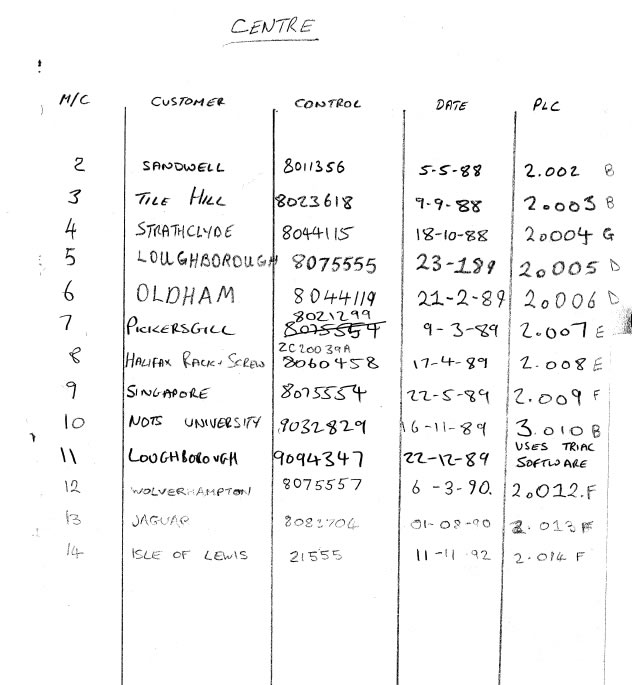 CENTRE
M/C CUSTOMER CONTROL DATE PLC
2 SANDWELL 8011356 5-5-88 2.002 B
3 TILE HILL 8023618 9-9-88 2.0003 B
4 STRATHCLYDE 8044115 18-10-88 2.0004 G
5 LOUGHBOROUGH 8075555 23-189 2.0005 D
6 OLDHAM 8044119 21-2-89 2.0006 D
8021299
7 PICKERSGILL 8075554 9-3-89 2.007 E
2C20039A
8 HALIFAX RACK + SCREW 8060458 17-4-89 2.008 E
9 SINGAPORE 8075554 22-5-89 2.009 F
10 NOTS UNIVERSITY 9032829 16-11-89 3.010 B
USES TRIAC
11 LOUGHBOROUGH 9094347 22-12-89 SOFTWARE
12 WOLVERHAMPTON 8075557 6-3-90. 2.012.F
13 JAGUAR 01-08-90 2.013 F
14 ISLE OF LEWIS 21555 11-11-92 2.014 F